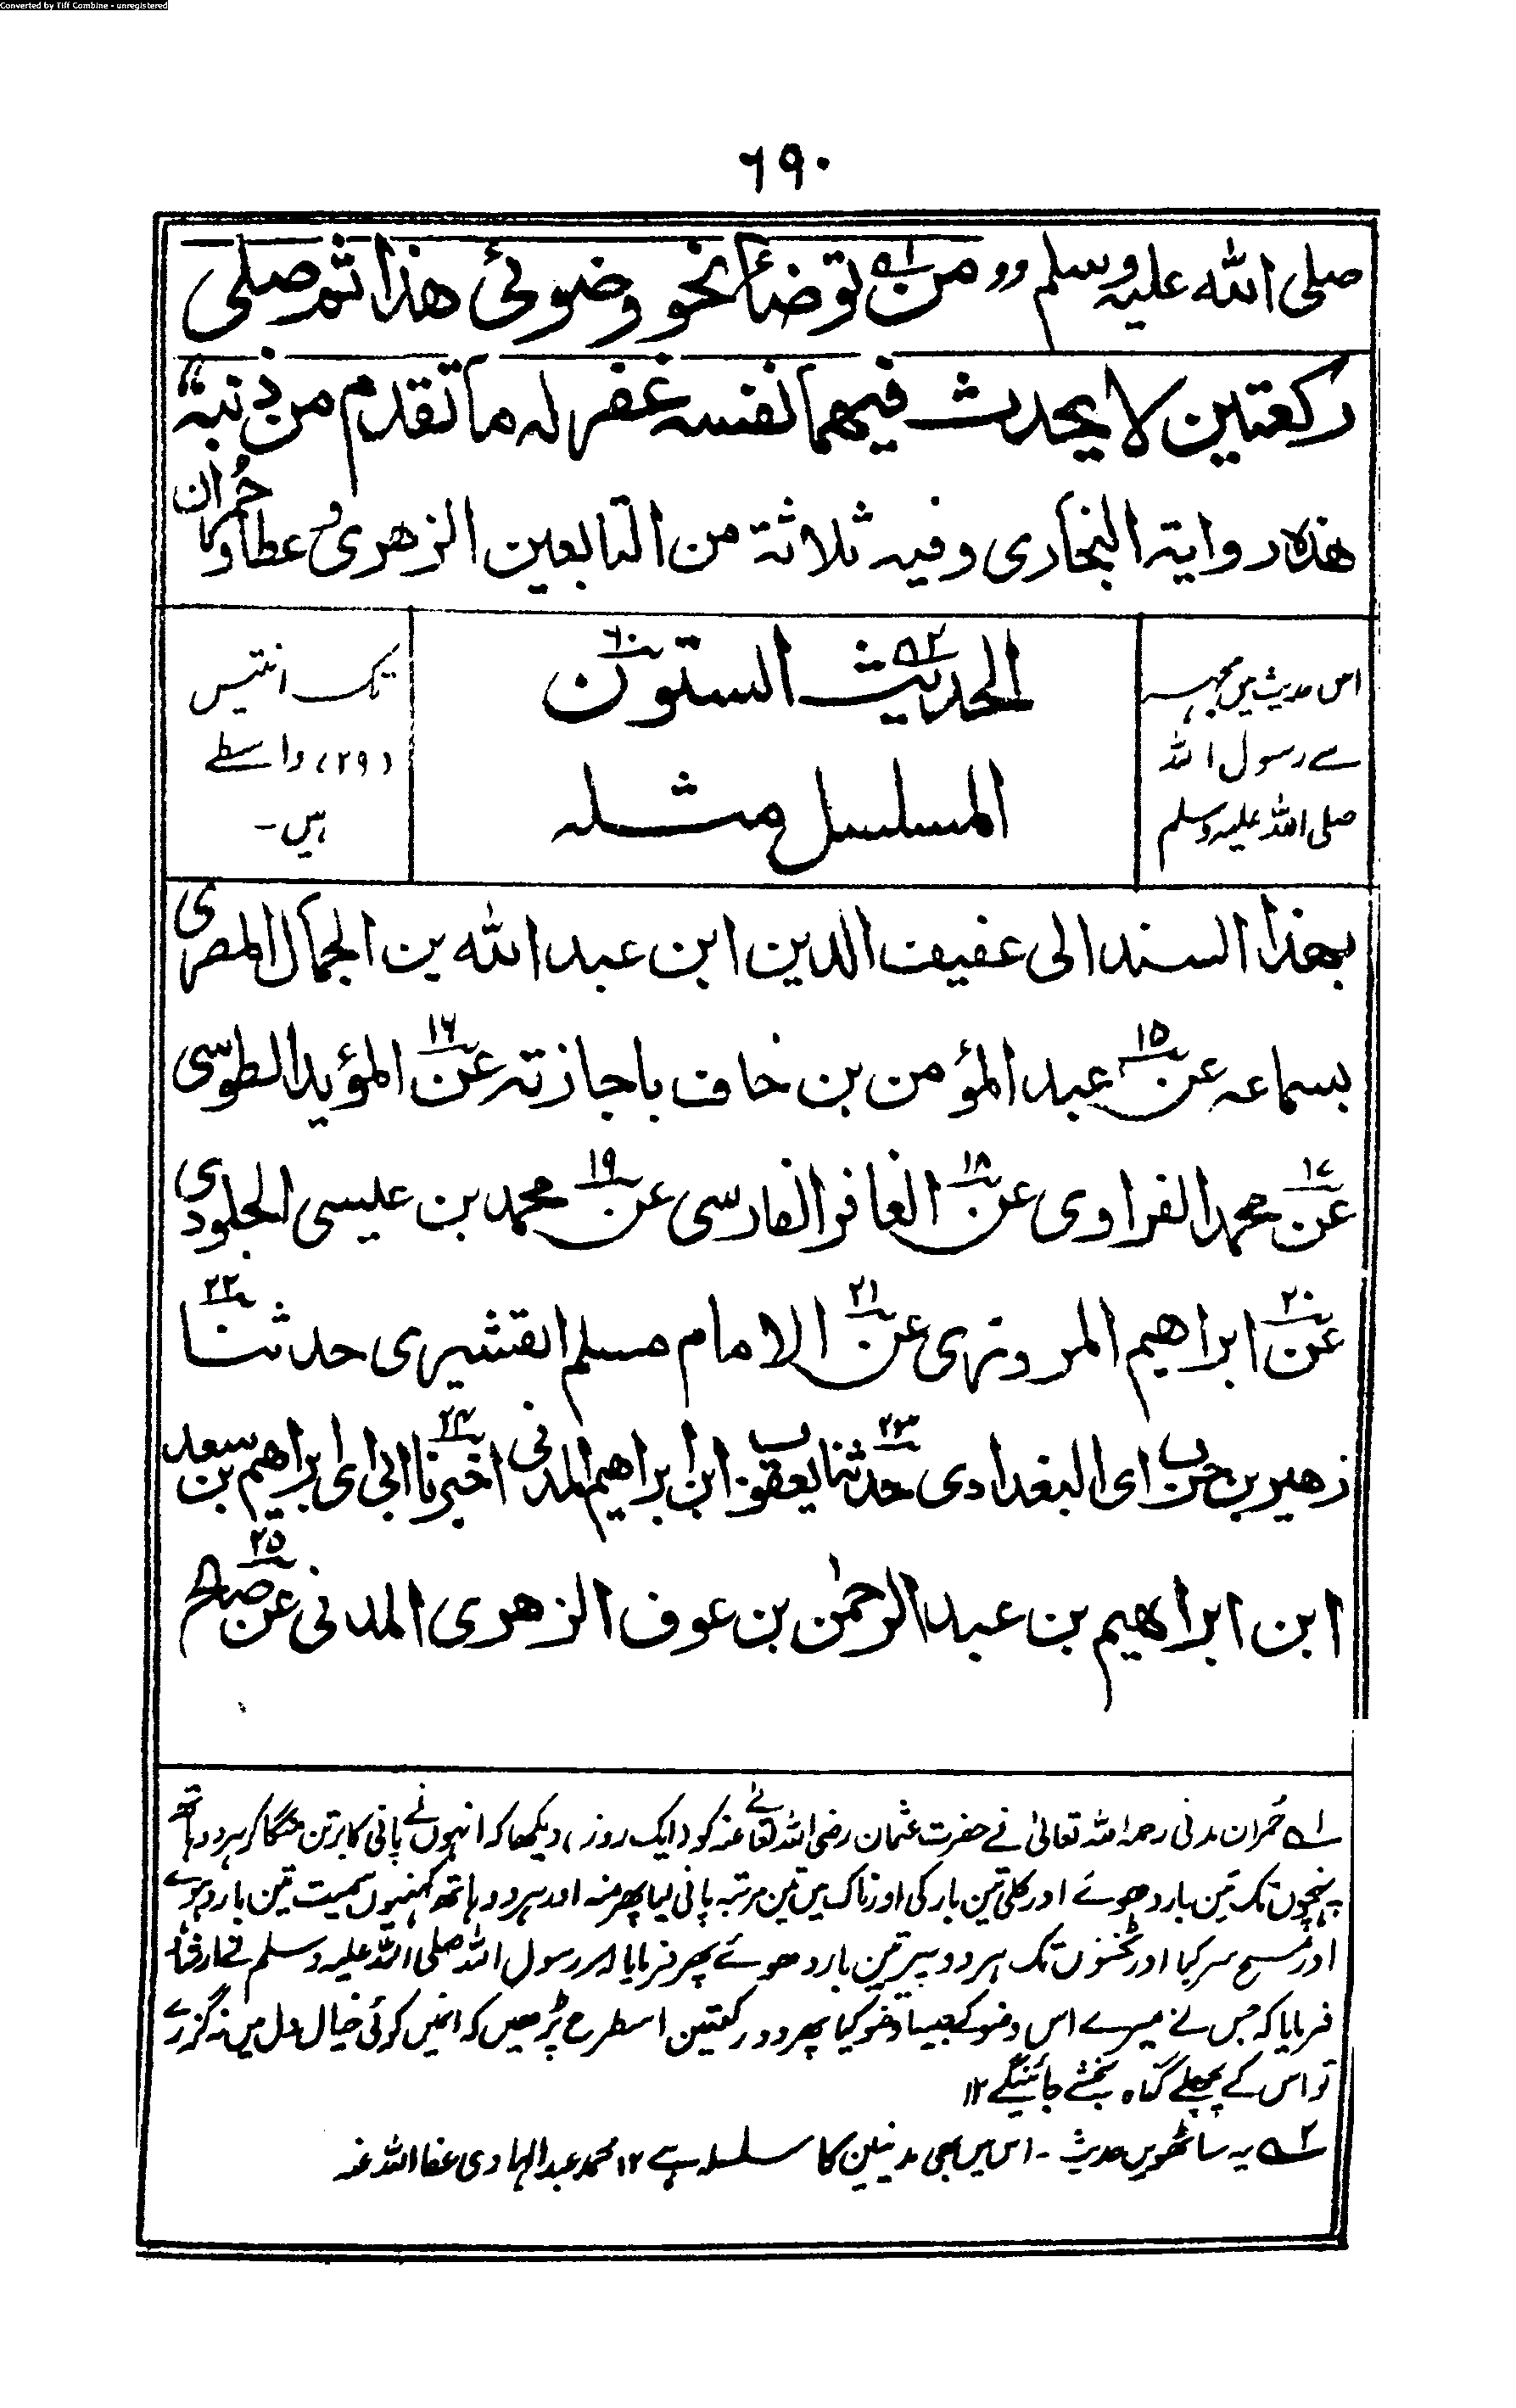 Converted by Tiff Combine - unregistered
٦٩٠
صلى الله عليه وسلم " من ١ه توضأ نحو وضوئى هذا ثم صلى
ركعتين لا يحدث فيهما نفسه غفر له ما تقدم من ذنبه "
هذه رواية البخارى وفيه ثلاثة من التابعين الزهرى وعطا وحُمران
اس حدیث میں مجہہ
سے رسول اللہ
صلی اللہ علیہ وسلم
الحديث ٢ه الستون ٦٠
المسلسل مثله
تک انتیس
(۲۹) واسطے
ہیں۔
بهذا السند الى عفيف الدين ابن عبد الله بن الجمال المصرى
بسماعه عن ١٥ عبد المؤمن بن خاف باجازته عن ١٦ المؤيد الطوسى
عن ١٧ محمد الفراوى عن ١٨ الغافر الفارسى عن ١٩ محمد بن عليسى الجلودى
عن ٢٠ ابراهيم المروزى عن ٢١ الامام مسلم القشيرى حدثنا ٢٢
زهير بن حرب اى البغدادى حدثنا ٢٣ يعقوب ابن ابراهيم المدنى اخبرنا ٢٤ ابى اى ابراهيم بن سعد
ابن ابراهيم بن عبد الرحمٰن بن عوف الزهرى المدنى عن ٢٥ صالح
۱ه حُمران مدنی رحمہ اللہ تعالیٰ نے حضرت عثمان رضی اللہ تعالےٰ عنہ کو (ایک روز) دیکھا کہ انہوں نے پانی کا برتن منگا کر ہر دو ہاتھ
پہنچوں تک تین بار دھوئے اور کلی تین بار کی اور ناک میں تین مرتبہ پانی لیا پھر منہ اور ہر دو ہاتھ کہنیوں سمیت تین بار دہوے
اور مسح سر کیا اور ٹخنوں تک ہر دو پیر تین بار دھوئے پھر فرمایا اور رسول اللہ صلی اللہ علیہ وسلم نے ارشاد
فرمایا کہ جس نے میرے اس وضو کے جیسا وضو کیا پھر دو رکعتین اسطرح پڑھیں کہ انمیں کوئی خیال دل میں نہ گزرے
تو اس کے پچھلے گناہ بخشے جائینگے ۱۲
۲ه یہ ساٹھویں حدیث ۔ اس میں بھی مدنیین کا سلسلہ ہے ۱۲ محمد عبد الہادی عفا اللہ عنہ